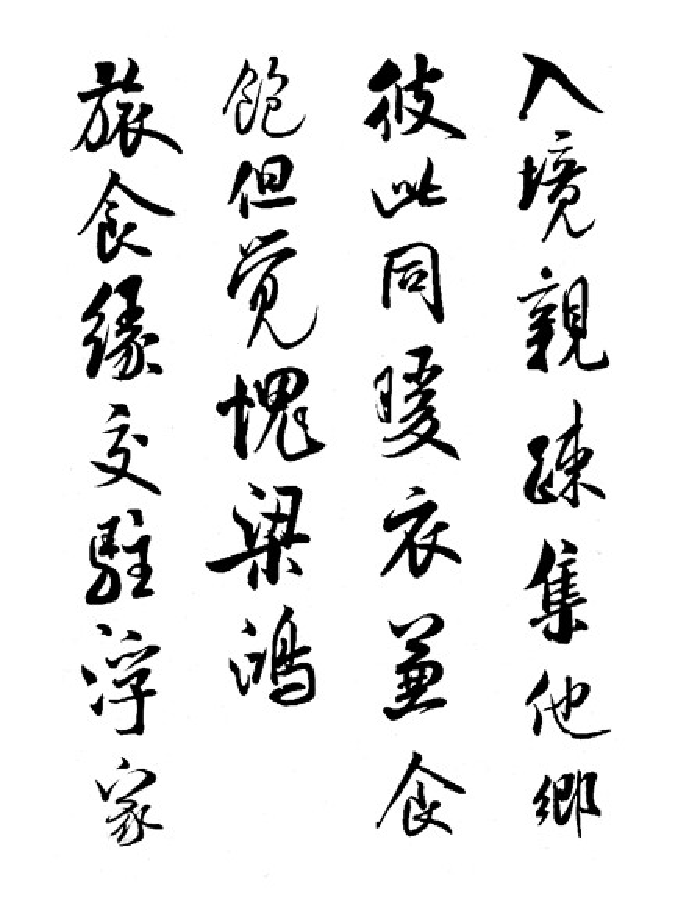 入境親疎集他鄉
彼此同暖衣兼食
飽但覺愧梁鴻
旅食緣交駐浮家